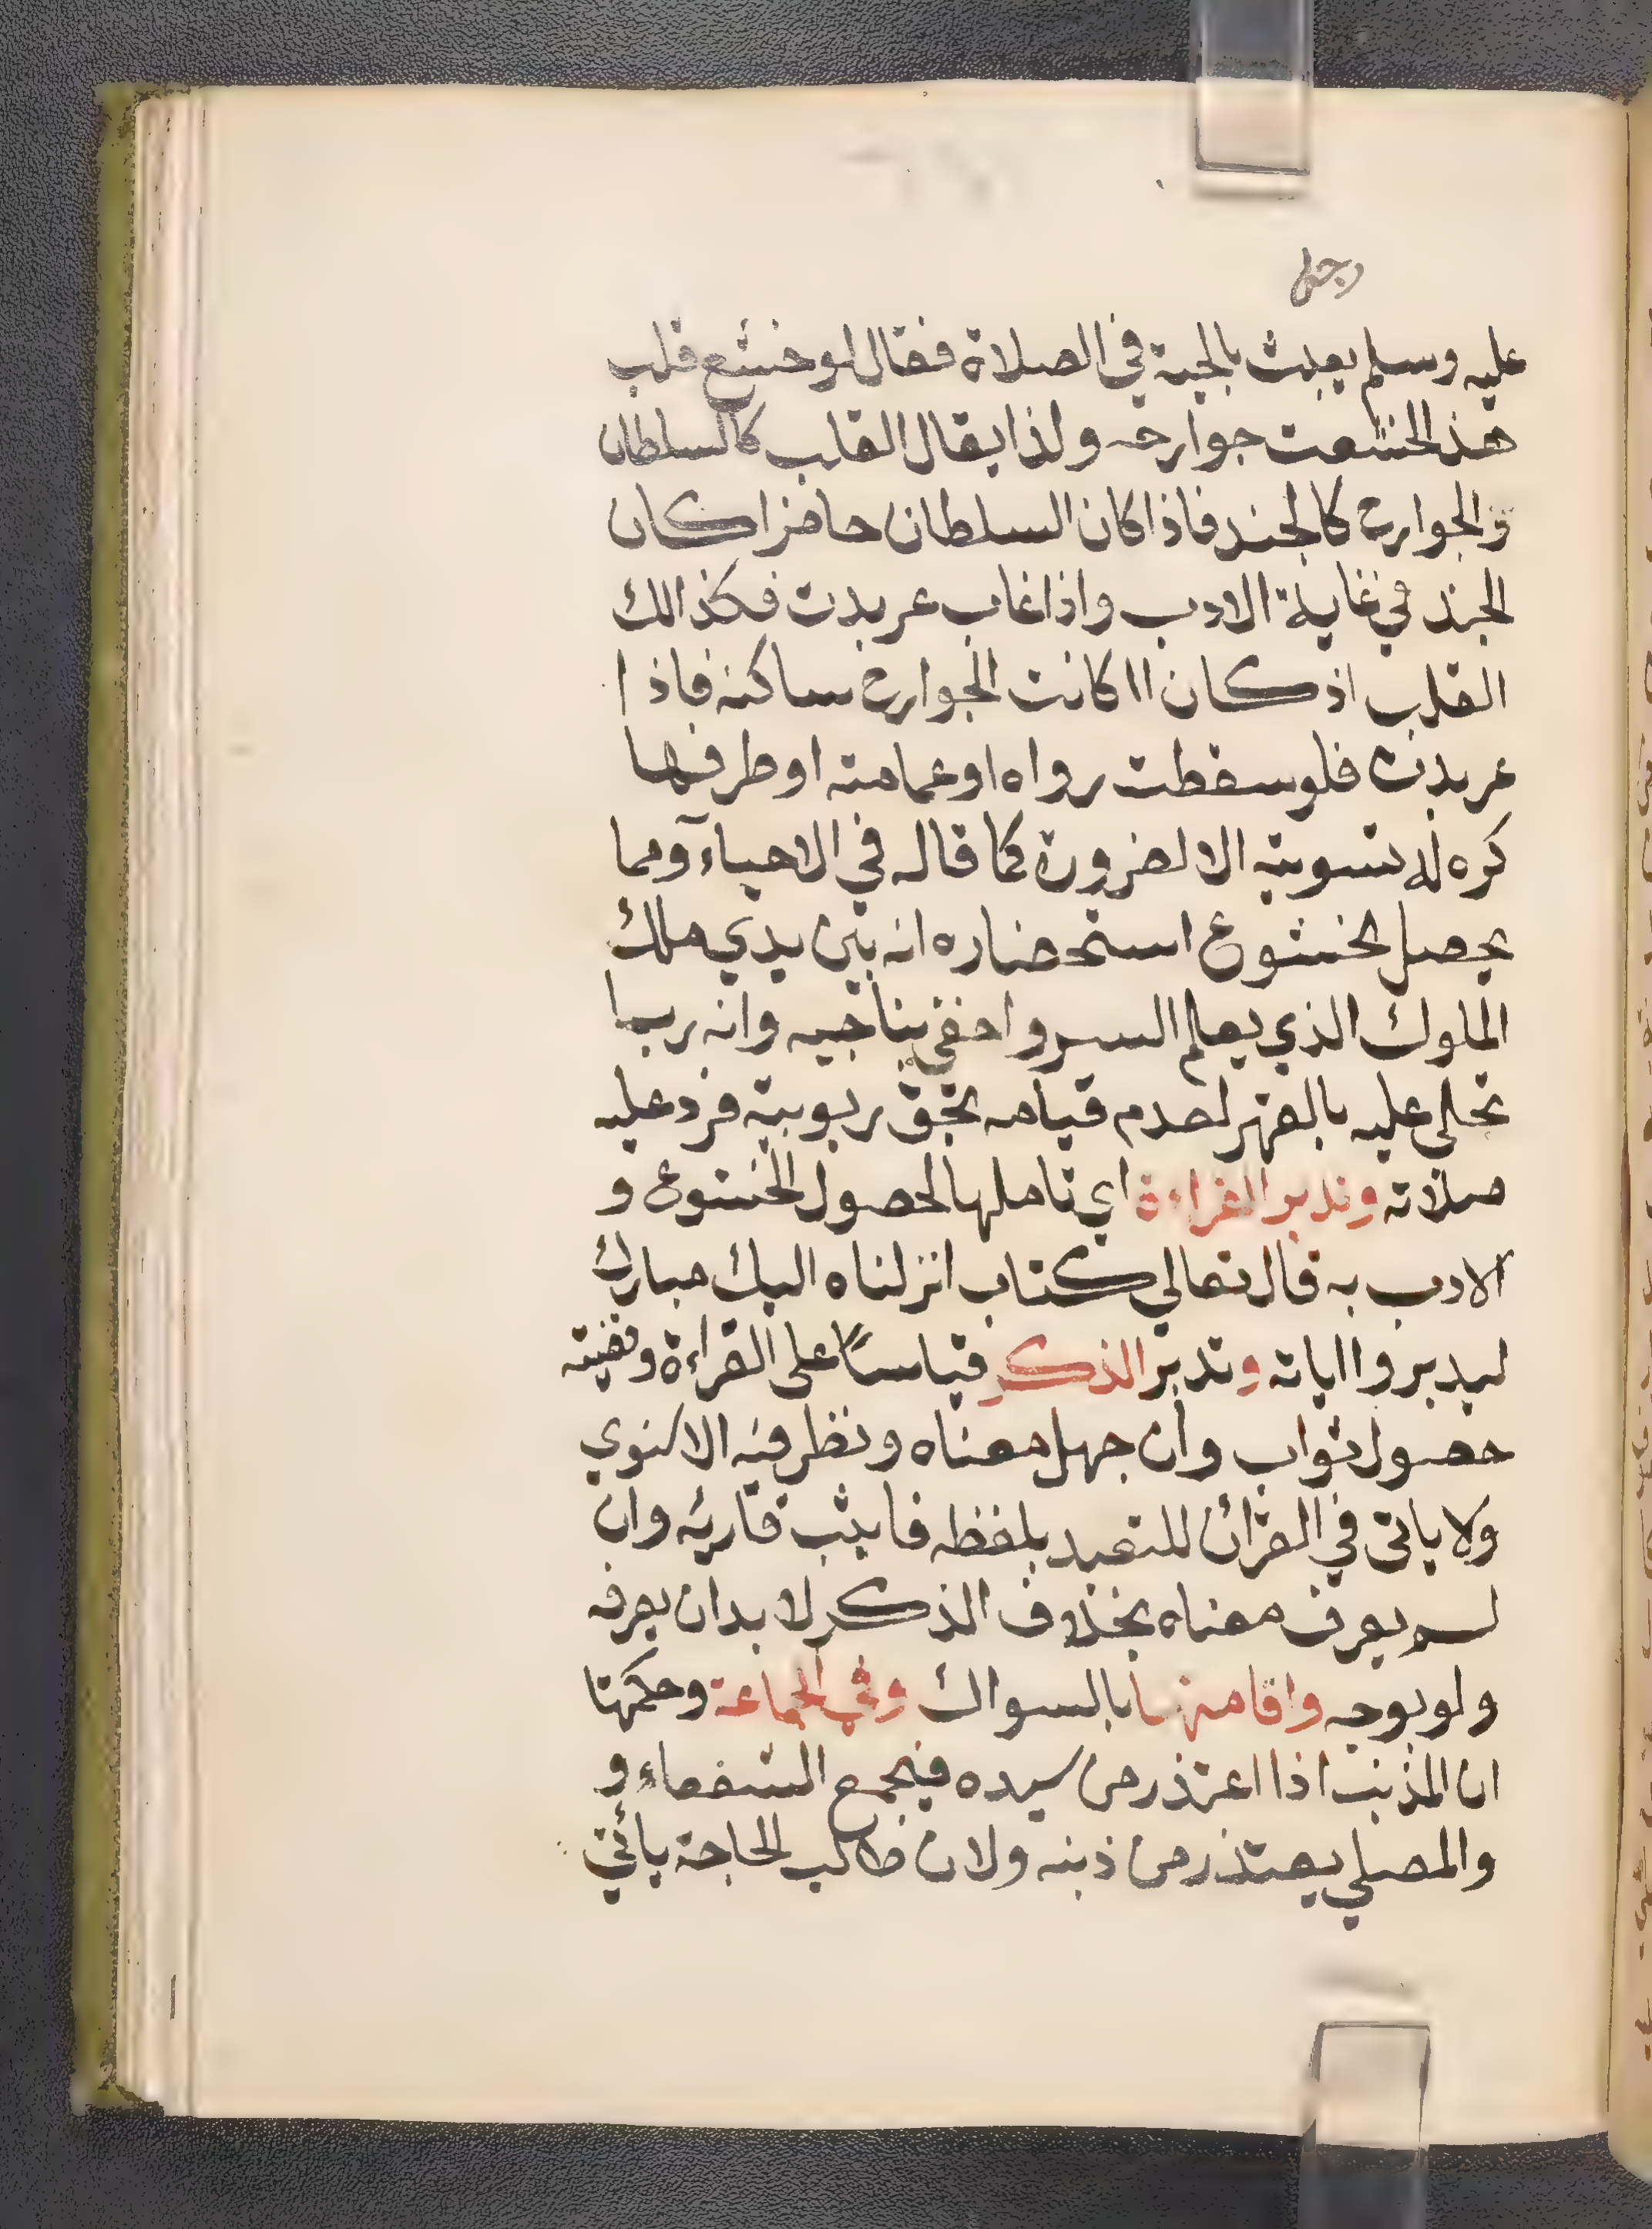 رجلا
عليه وسلم يعبث بالحية في الصلاة فقال لو خشع قلب
هذا لخشعت جوارحه ولذا يقال القلب كالسلطان
والجوارح كالجند فاذا كان السلطان حاضرا كان
الجند في غاية الادب واذا غاب عربدت فكذالك
القلب اذ كان اا كانت الجوارح ساكنة فاذا
عربدت فلو سقطت رواه او عمامته او طرفها
كره له تسويته الا لضرورة كما قاله في الاحياء ومما
يحصل الخشوع استحضاره انه بين يدي ملك
الملوك الذي يعلم السر واخفي يناجيه وانه ربما
تجلى عليه بالقهر لعدم قيامه بحق ربوبيته فرد عليه
صلاته وتدبر القراءة اي تاملها لحصول الخشوع و
الادب به قال تعالي كتاب انزلناه اليك مبارك
ليدبروا اياته وتدبر الذكر قياسًا على القراءة وقضيته
حصول ثواب وان جهل معناه ونظر فيه الاسنوي
ولا ياتى في القران للتعبد بلفظه فايثب قاريه وان
لم يعرف معناه بخلاف الذكر لا بد ان يعرفه
ولو بوجه واقامتها بالسواك وفي الجماعة وحكمتها
ان المذنب اذا اعتذر من سيده فيجمع الشفعاء و
والمصلي يعتذر من ذنبه ولان طالب الحاجة يأتي